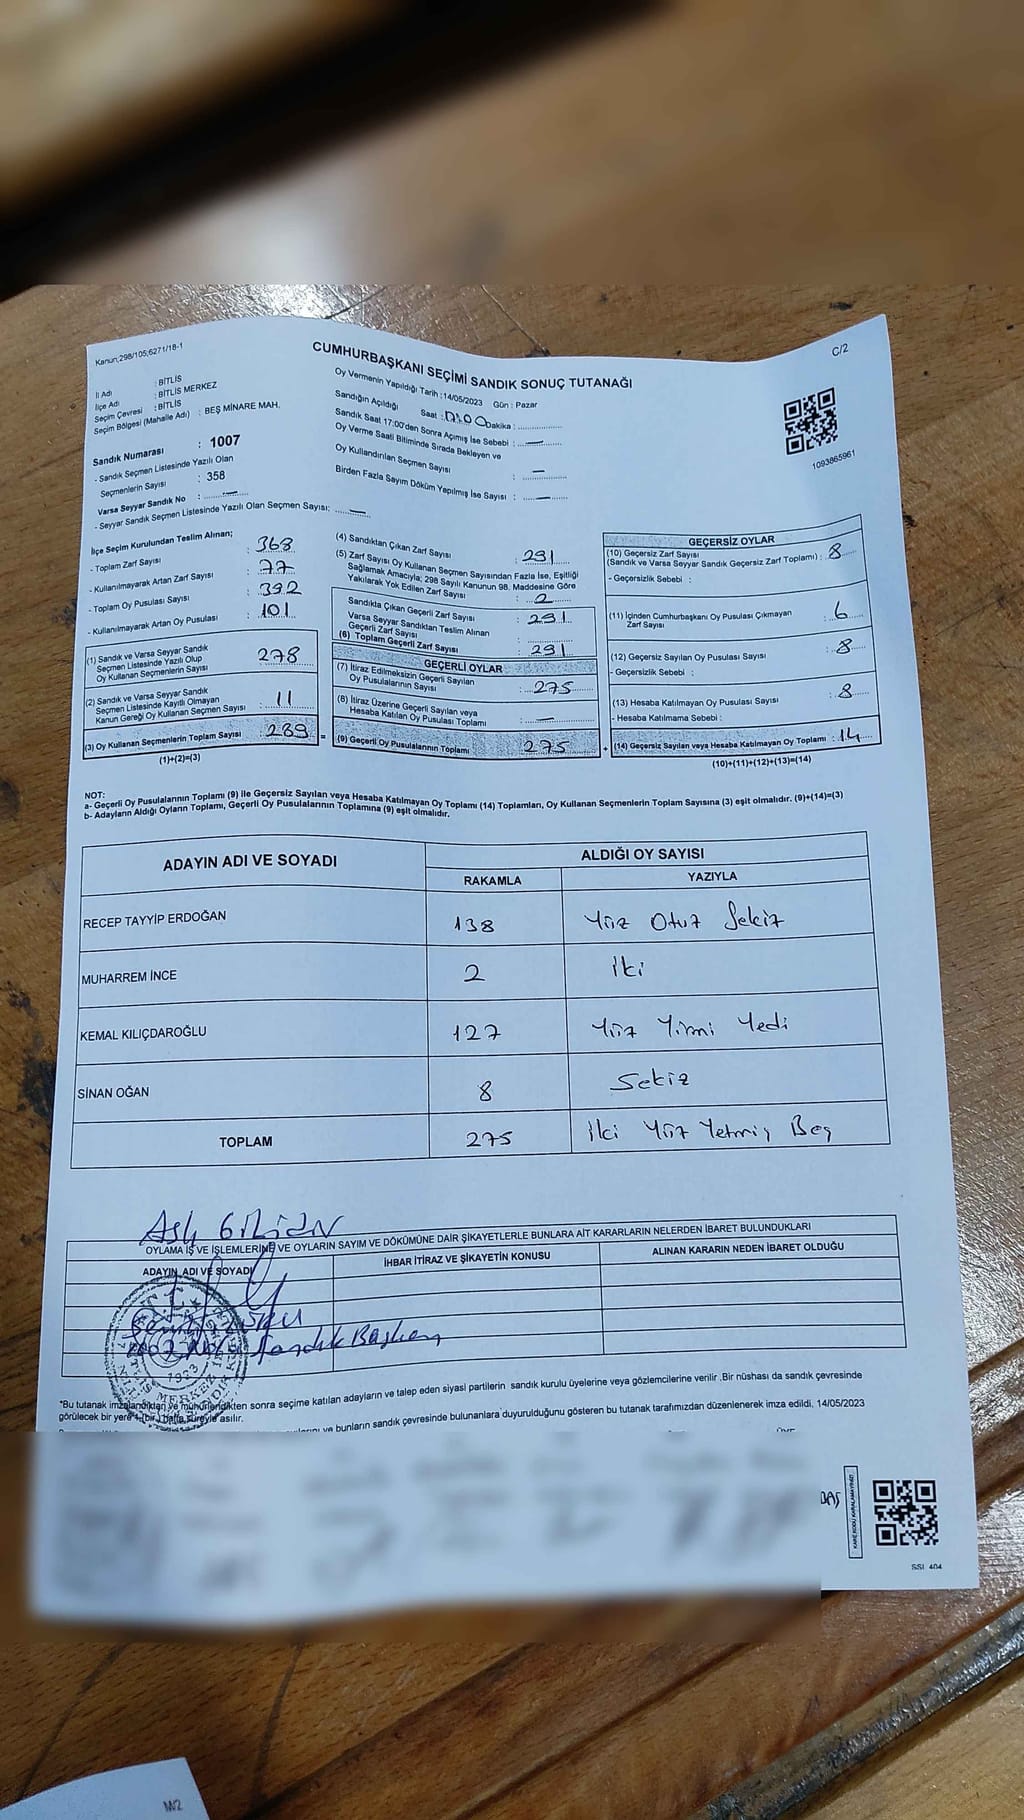 Kanun;298/105;6271/18-1
C/2
CUMHURBAŞKANI SEÇİMİ SANDIK SONUÇ TUTANAĞI
İl Adı : BİTLİS
İlçe Adı : BİTLİS MERKEZ
Seçim Çevresi : BİTLİS
Seçim Bölgesi (Mahalle Adı) : BEŞ MİNARE MAH.
Sandık Numarası : 1007
- Sandık Seçmen Listesinde Yazılı Olan
Seçmenlerin Sayısı : 358
Varsa Seyyar Sandık No : —
- Seyyar Sandık Seçmen Listesinde Yazılı Olan Seçmen Sayısı; —
Oy Vermenin Yapıldığı Tarih : 14/05/2023 Gün : Pazar
Sandığın Açıldığı Saat : 17:00 Dakika :
Sandık Saat 17:00'den Sonra Açımış İse Sebebi : —
Oy Verme Saati Bitiminde Sırada Bekleyen ve
Oy Kullandırılan Seçmen Sayısı : —
Birden Fazla Sayım Döküm Yapılmış İse Sayısı : —
1093865961
İlçe Seçim Kurulundan Teslim Alınan;
- Toplam Zarf Sayısı : 368
- Kullanılmayarak Artan Zarf Sayısı : 77
- Toplam Oy Pusulası Sayısı : 392
- Kullanılmayarak Artan Oy Pusulası : 101
(1) Sandık ve Varsa Seyyar Sandık
Seçmen Listesinde Yazılı Olup
Oy Kullanan Seçmenlerin Sayısı : 278
(2) Sandık ve Varsa Seyyar Sandık
Seçmen Listesinde Kayıtlı Olmayan
Kanun Gereği Oy Kullanan Seçmen Sayısı : 11
(3) Oy Kullanan Seçmenlerin Toplam Sayısı : 289 =
(1)+(2)=(3)
(4) Sandıktan Çıkan Zarf Sayısı : 291
(5) Zarf Sayısı Oy Kullanan Seçmen Sayısından Fazla İse, Eşitliği
Sağlamak Amacıyla; 298 Sayılı Kanunun 98. Maddesine Göre
Yakılarak Yok Edilen Zarf Sayısı : 2
Sandıkta Çıkan Geçerli Zarf Sayısı : 291
Varsa Seyyar Sandıktan Teslim Alınan
Geçerli Zarf Sayısı :
(6) Toplam Geçerli Zarf Sayısı : 291
GEÇERLİ OYLAR
(7) İtiraz Edilmeksizin Geçerli Sayılan
Oy Pusulalarının Sayısı : 275
(8) İtiraz Üzerine Geçerli Sayılan veya
Hesaba Katılan Oy Pusulası Toplamı : —
(9) Geçerli Oy Pusulalarının Toplamı : 275 +
GEÇERSİZ OYLAR
(10) Geçersiz Zarf Sayısı
(Sandık ve Varsa Seyyar Sandık Geçersiz Zarf Toplamı) : 8
- Geçersizlik Sebebi :
(11) İçinden Cumhurbaşkanı Oy Pusulası Çıkmayan
Zarf Sayısı : 6
(12) Geçersiz Sayılan Oy Pusulası Sayısı : 8
- Geçersizlik Sebebi :
(13) Hesaba Katılmayan Oy Pusulası Sayısı : 8
- Hesaba Katılmama Sebebi :
(14) Geçersiz Sayılan veya Hesaba Katılmayan Oy Toplamı : 14
(10)+(11)+(12)+(13)=(14)
NOT:
a- Geçerli Oy Pusulalarının Toplamı (9) ile Geçersiz Sayılan veya Hesaba Katılmayan Oy Toplamı (14) Toplamları, Oy Kullanan Seçmenlerin Toplam Sayısına (3) eşit olmalıdır. (9)+(14)=(3)
b- Adayların Aldığı Oyların Toplamı, Geçerli Oy Pusulalarının Toplamına (9) eşit olmalıdır.
ADAYIN ADI VE SOYADI
ALDIĞI OY SAYISI
RAKAMLA YAZIYLA
RECEP TAYYİP ERDOĞAN 138 Yüz Otuz Sekiz
MUHARREM İNCE 2 iki
KEMAL KILIÇDAROĞLU 127 Yüz Yirmi Yedi
SİNAN OĞAN 8 Sekiz
TOPLAM 275 iki Yüz Yetmiş Beş
OYLAMA İŞ VE İŞLEMLERİNE VE OYLARIN SAYIM VE DÖKÜMÜNE DAİR ŞİKAYETLERLE BUNLARA AİT KARARLARIN NELERDEN İBARET BULUNDUKLARI
ADAYIN ADI VE SOYADI İHBAR İTİRAZ VE ŞİKAYETİN KONUSU ALINAN KARARIN NEDEN İBARET OLDUĞU
Sandık Başkanı
1923
*Bu tutanak imzalandıktan ve mühürlendikten sonra seçime katılan adayların ve talep eden siyasi partilerin sandık kurulu üyelerine veya gözlemcilerine verilir .Bir nüshası da sandık çevresinde
görülecek bir yere 1 (bir) hafta süreyle asılır.
ve bunların sandık çevresinde bulunanlara duyurulduğunu gösteren bu tutanak tarafımızdan düzenlenerek imza edildi. 14/05/2023
KARE KODU KARALAMAYINIZ!
SSI_404
M/2